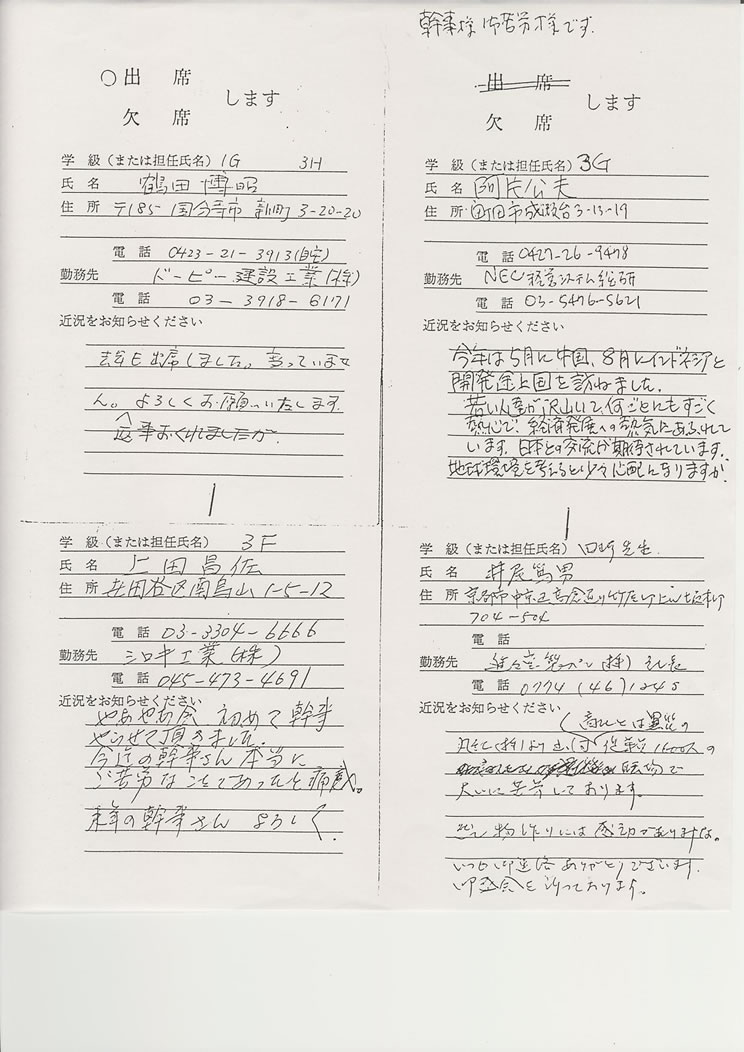 幹事様 御苦労様です.
○出 席
欠 席
します
学 級（または担任氏名） 1G 3H
氏 名 鶴田 博昭
住 所 〒185 国分寺市 新町 3-20-20
電 話 0423-21-3913(自宅)
勤務先 ドーピー建設工業(株)
電 話 03-3918-6171
近況をお知らせください
去年も出席しました。変っていませ
ん。よろしくお願いいたします.
返事おくれましたが
出 席
欠 席
します
学 級（または担任氏名） 3G
氏 名 公夫
住 所 町田市成瀬台3-13-19
電 話 0427-26-9478
勤務先 NEC経営システム総研
電 話 03-5476-5621
近況をお知らせください
今年は5月に中国、8月にインドネシアと
開発途上国を訪ねました.
若い人達が沢山いて、何ごとにもすごく
熱心で、経済発展への熱気にあふれて
います. 日本との交流が期待されています.
地球環境を考えると少々心配になりますが.
学 級（または担任氏名） 3F
氏 名 上田昌佐
住 所 世田谷区南烏山 1-5-12
電 話 03-3304-6666
勤務先 シロキ工業(株)
電 話 045-473-4691
近況をお知らせください
やあやあ会 初めて幹事
やらせて頂きました.
今迄の幹事さん 本当に
ご苦労なことであったと痛感.
来年の幹事さん よろしく
学 級（または担任氏名） 先生
氏 名 井尻篤男
住 所 京都市中京区高倉通り竹屋町
704-504
電 話
勤務先 (株)
電 話 0774 (46) 1248
近況をお知らせください
(株)より出向 従業員1600人の
大いに苦労しております.
物作りには感動がありますな。
いつも御連絡ありがとうございます.
御盛会を祈っております。